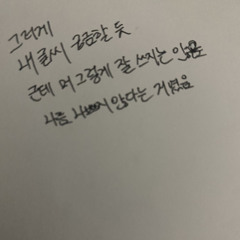 그러게
내 글씨 궁금할 듯
근데 머 그렇게 잘 쓰지는 않음
나쁘지 않다는 거였음